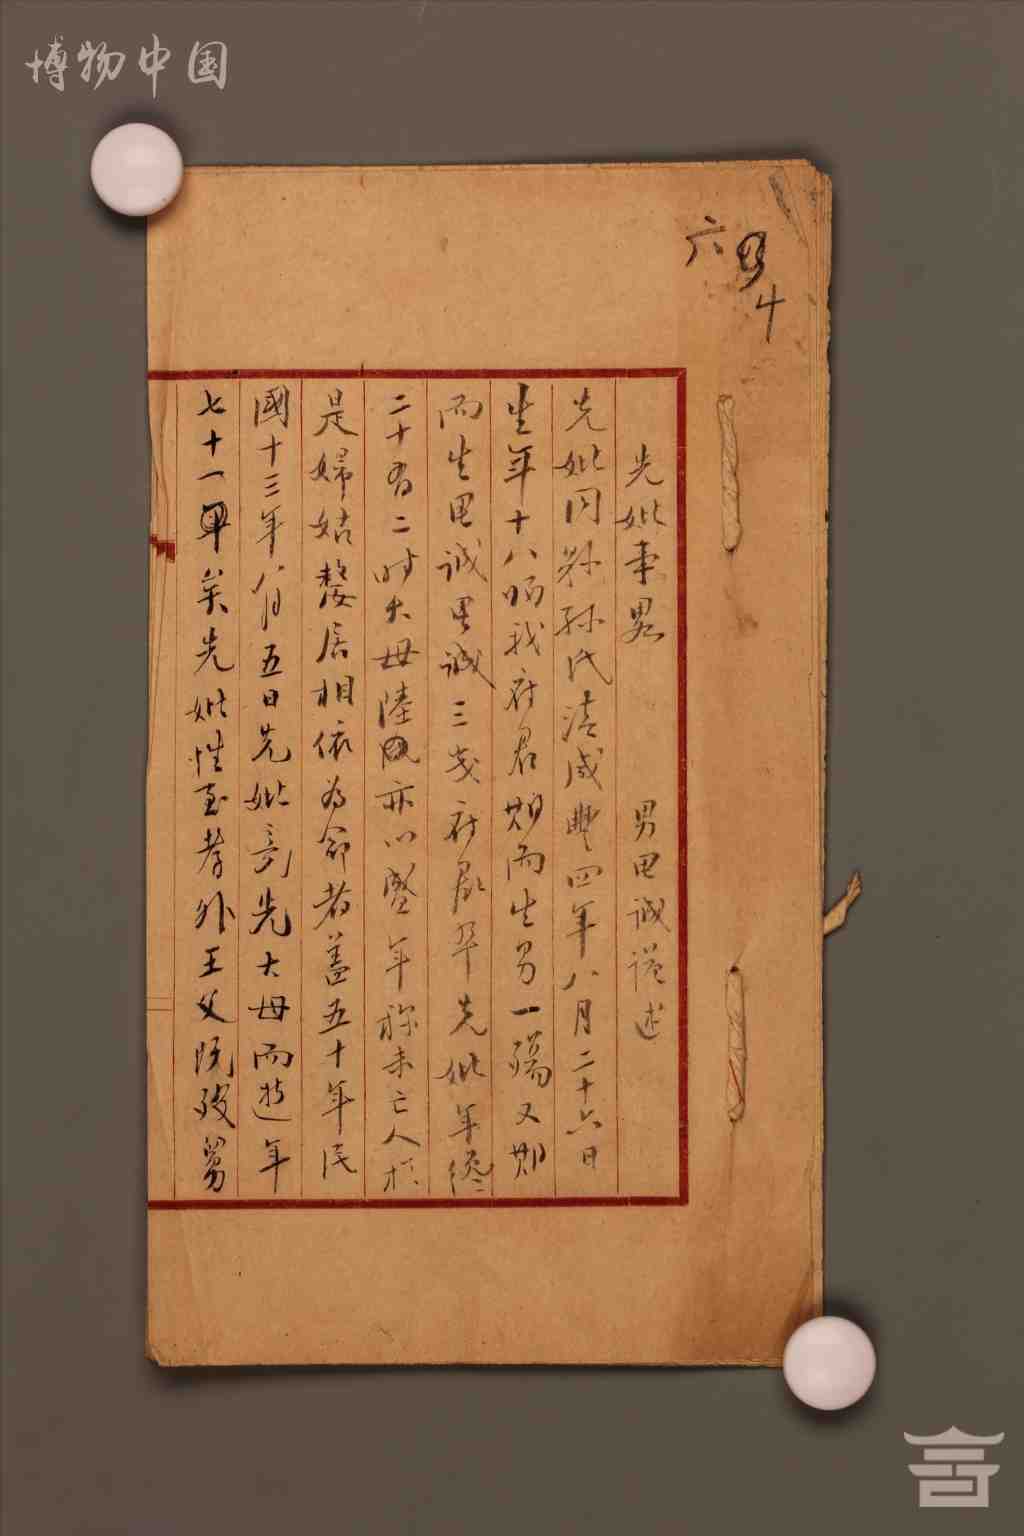 博物中国
六
十
先妣事畧 男思诚谨述
先妣同縣孫氏清咸豐四年八月二十六日
生年十八婦我府君期而生男一殤又期
而生思誠思誠三岁府君卒先妣年纔
二十有二時大母陸氏亦以盛年称未亡人於
是婦姑嫠居相依为命者蓋五十年民
國十三年八月五日先妣竟先大母而逝年
七十一矣先妣性至孝外王父既殁舅